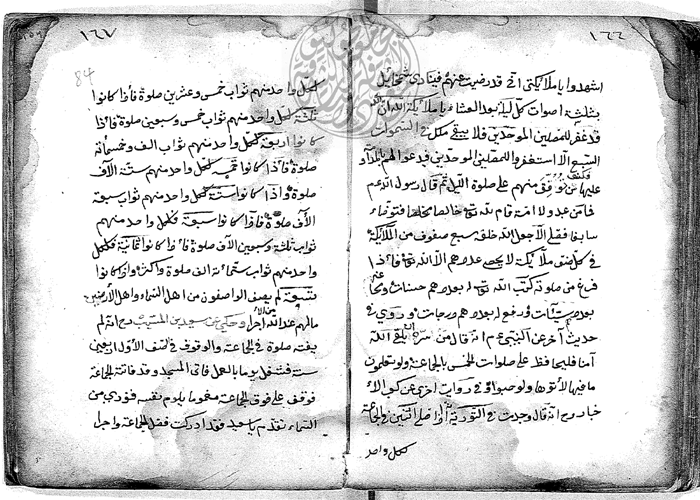 ١٦٦
اشهدوا يا ملائكتي اني قد رضيت عنهم فينادي
بثلثة اصوات كل ليلة بعد العشاء يا ملائكة الله ان الله
قد غفر للمصلين الموحدين فلا يبقى ملك في السموات
السبع الا استغفر للمصلين الموحدين فيدعوا لهم
منهم على صلوة الليل ثم قال رسول الله عم
فما من عبد ولا امة قام لله تع خالصا مخلصا فتوضاء
سابغا فصلى الا جعل الله خلفه سبع صفوف من الملائكة
في كل صف ملائكة لا يحصى عددهم الا الله تع فاذا
فرغ من صلوته كتب الله تع بعددهم حسنات ومحا عنه
بعددهم سيئات ورفع له بعددهم درجات وروي في
حديث آخر عن النبي عم انه قال من سره ان يلقى الله
آمنا فليحافظ على صلوات الخمس بالجماعة ولو تعلمون
ما فيها لاتوها ولو حبوا وفي رواية اخرى عن كعب الا
خبار رح انه قال وجدت في التورية اذا صلى اثنين في الجماعة
كل واحد
١٦٧
84
لكل واحد منهم ثواب خمس وعشرين صلوة فاذا كانوا
ثلثة لكل واحد منهم ثواب خمس وسبعين صلوة فاذا
كانوا اربعة لكل واحد منهم ثواب الف وخمسمائة
صلوة فاذا كانوا خمسة لكل واحد منهم ستة الآف
صلوة واذا كانوا ستة لكل واحد منهم ثواب سبعة
الآف صلوة فاذا كانوا سبعة فلكل واحد منهم
ثواب ثلثة وسبعين الآف صلوة فاذا كانوا ثمانية فلكل
واحد منهم ثواب ستمائة الف صلوة واكثر واذا كانوا
تسعة لم يصف الواصفون من اهل السماء واهل الارضين
ما لهم عند الله من الاجر وحكي عن سعيد بن المسيب رح انه لم
يفته صلوة في الجماعة والوقوف في الصف الاول اربعين
سنة فشغل يوما بالعمل فاتى المسجد وقد فاتته الجماعة
فوقف على فوق الجماعة مغموما يلوم نفسه فنودي من
السماء تقدم يا سعيد فقد ادركت فضل الجماعة واجرا